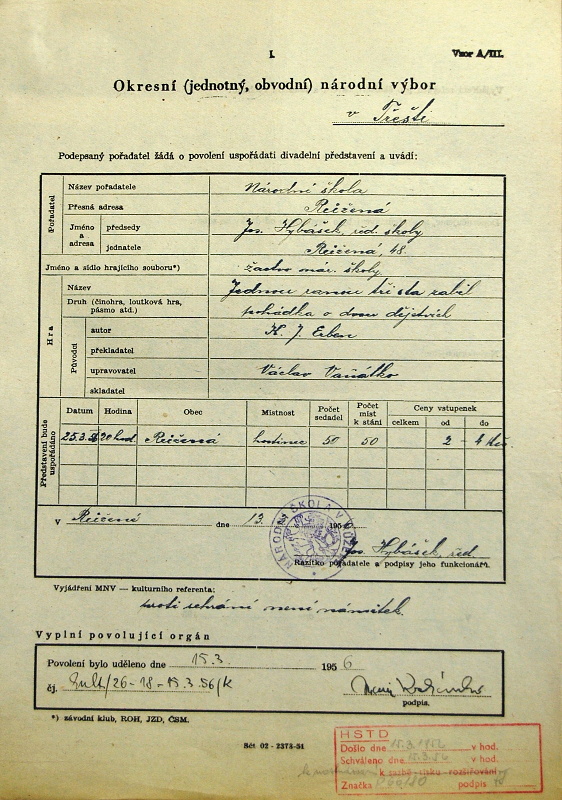 I.
Vzor A/III.
Okresní (jednotný, obvodní) národní výbor
v Třešti
Podepsaný pořadatel žádá o povolení uspořádati divadelní představení a uvádí:
Pořadatel
Název pořadatele Národní škola
Přesná adresa Růžená
Jméno a adresa
předsedy Jos. Hybášek, řed. školy
jednatele Růžená, 48
Jméno a sídlo hrajícího souboru*) žactvo nár. školy
Hra
Název Jednou ranou tři sta zabil
Druh (činohra, loutková hra, pásmo atd.) pohádka o dvou dějstvích
Původci
autor K. J. Erben
překladatel
upravovatel Václav Vaňátko
skladatel
Představení bude uspořádáno
Datum Hodina Obec Místnost Počet sedadel Počet míst k stání Ceny vstupenek
celkem od do
25.3. 20 hod Růžená hostinec 50 50 2 - 4 Kčs.
V Růžené dne 13. 195
NÁRODNÍ ŠKOLA V RŮŽENÉ
Jos. Hybášek, řed.
Razítko pořadatele a podpisy jeho funkcionářů.
Vyjádření MNV — kulturního referenta:
proti sehrání není námitek.
Vyplní povolující orgán
Povolení bylo uděleno dne 15.3. 195 6
čj. Kult/26-18-15.3.56/K
podpis.
*) závodní klub, ROH, JZD, ČSM.
Sčt 02 - 2373-51
HSTD
Došlo dne 15.3.1956 v hod.
Schváleno dne 15.3.56 v hod.
k rozšiřování
Značka podpis